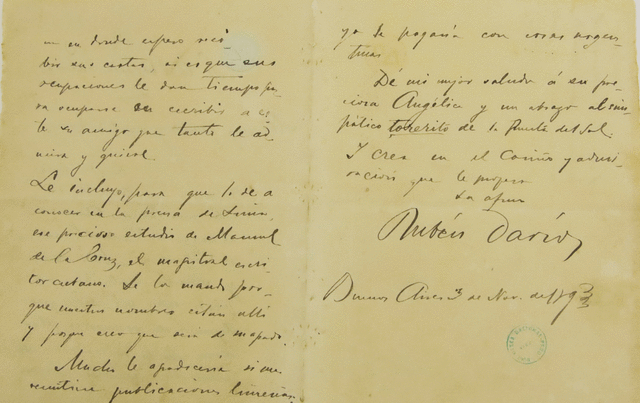 en donde espero reci-
bir sus cartas, si es que sus
ocupaciones le dan tiempo pa-
ra ocuparse en escribir a es-
te su amigo que tanto le ad-
mira y quiere.
Le incluyo, para que lo dé a
conocer en la prensa de Lima,
ese precioso estudio de Manuel
de la Cruz, el magistral escri-
tor cubano. Se lo mando por-
que nuestros nombres están allí
y porque creo que será de su agrado.
Mucho le agradecería si me
remitiese publicaciones limeñas
yo le pagaría con cosas argen-
tinas.
Dé mi mejor saludo á su pre-
ciosa Angélica y un abrazo al sim-
pático torerito de la Puerta del Sol.
Y crea en el cariño y admi-
ración que le profesa
su afmo
Rubén Darío
Buenos Aires 3 de Nov. de 1893